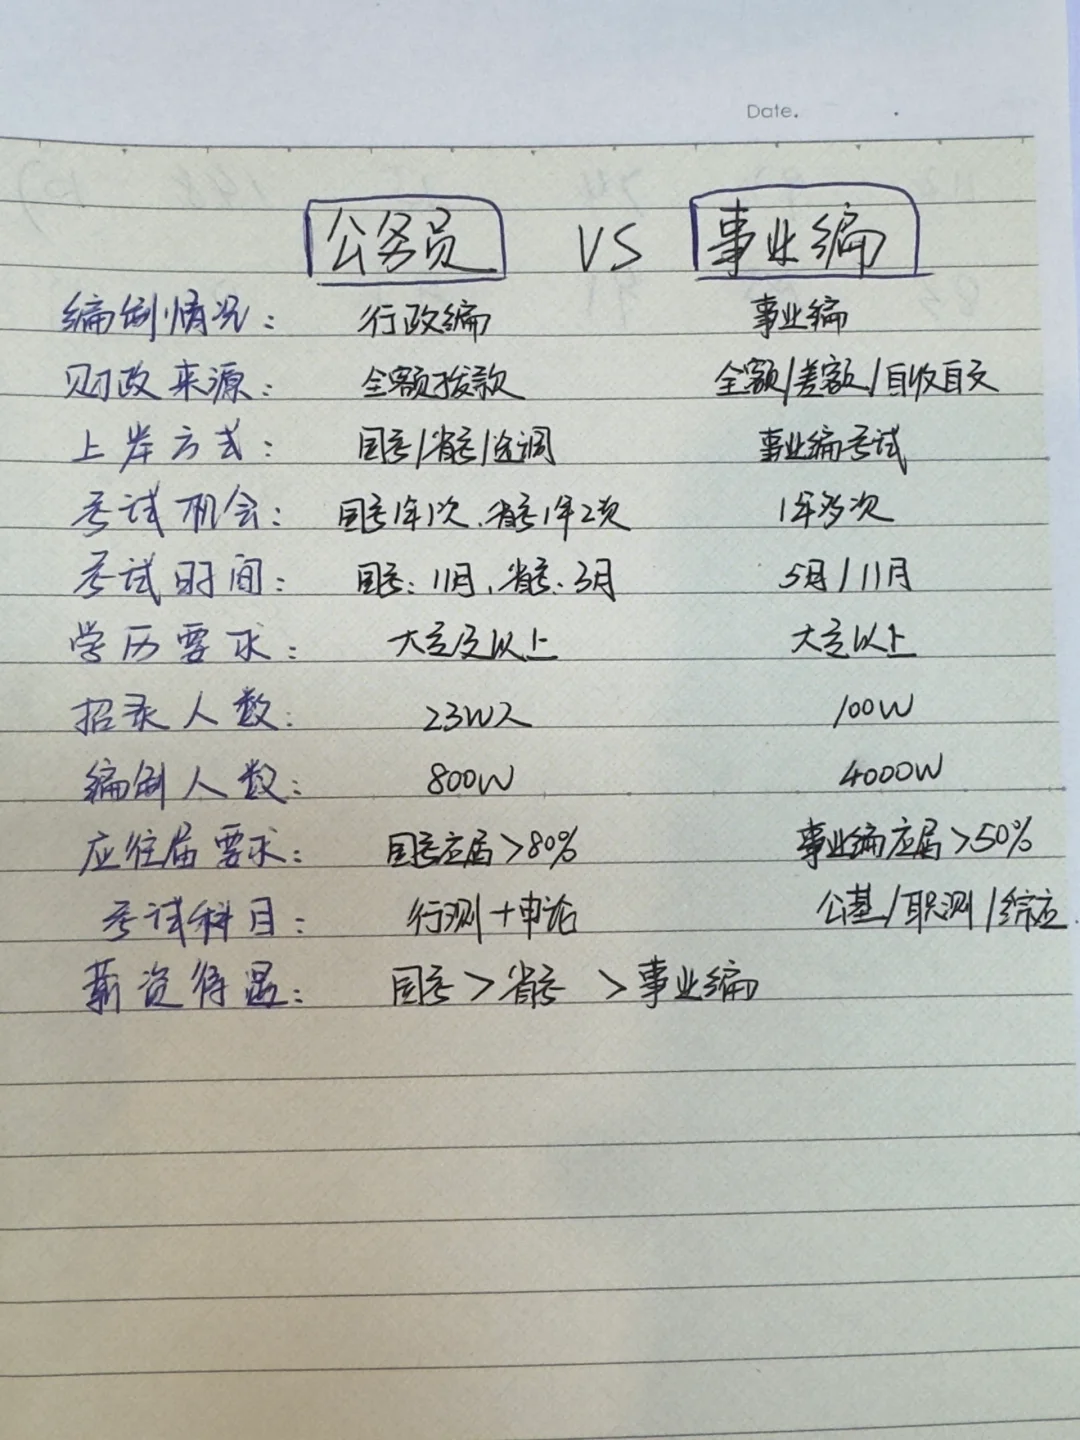 Date.
公务员 VS 事业编
编制情况: 行政编 事业编
财政来源: 全额拨款 全额/差额/自收自支
上岸方式: 国考/省考/选调 事业编考试
考试机会: 国考1年1次、省考1年2次 1年多次
考试时间: 国考:11月、省考:3月 5月/11月
学历要求: 大专及以上 大专以上
招录人数: 23W人 100W
编制人数: 800W 4000W
应往届要求: 国考应届>80% 事业编应届>50%
考试科目: 行测+申论 公基/职测/综应.
薪资待遇: 国考>省考>事业编